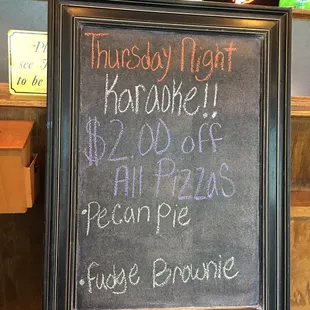 Thursday Night
Karaoke!!
$2.00 off
All Pizzas
• Pecan Pie
• Fudge Brownie
see
to be